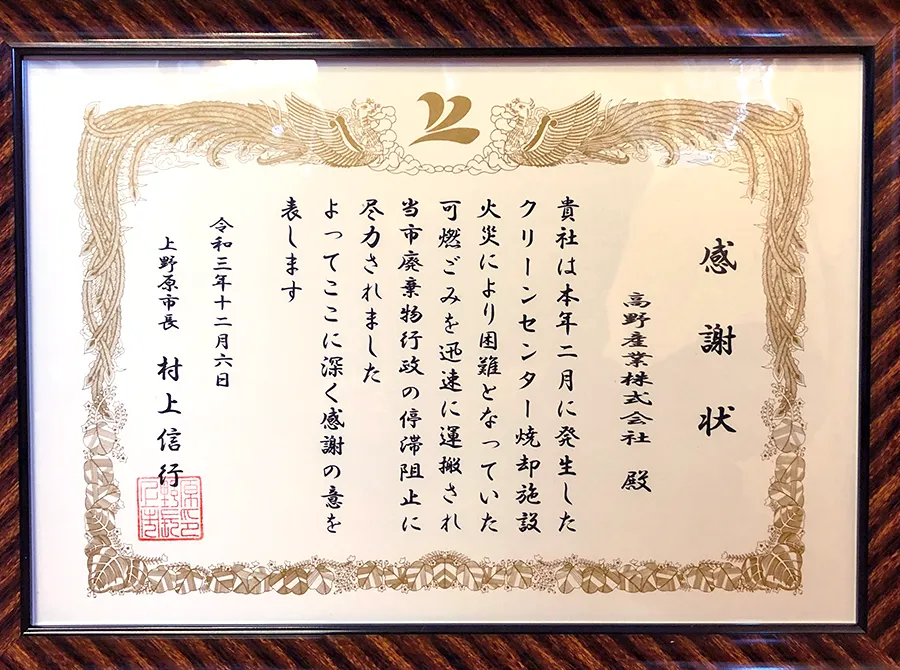 感謝状
高野産業株式会社 殿
貴社は本年二月に発生した
クリーンセンター焼却施設
火災により困難となっていた
可燃ごみを迅速に運搬され
当市廃棄物行政の停滞阻止に
尽力されました
よってここに深く感謝の意を
表します
令和三年十二月六日
上野原市長 村上信行